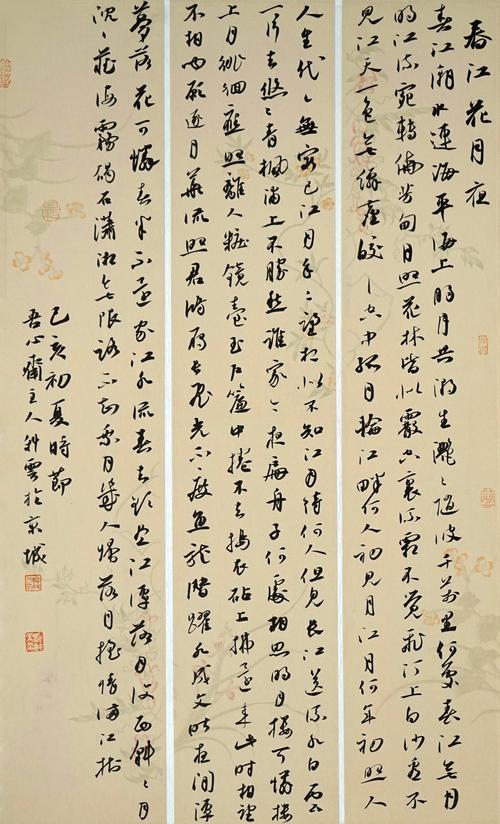 春江花月夜
春江潮水連海平海上明月共潮生灩々隨波千萬里何處春江無月
明江流宛轉繞芳甸月照花林皆似霰空裏流霜不覺飛汀上白沙看不
見江天一色無纖塵皎々空中孤月輪江畔何人初見月江月何年初照人
人生代々無窮已江月年々望相似不知江月待何人但見長江送流水白雲
一片去悠々青楓浦上不勝愁誰家今夜扁舟子何處相思明月樓可憐樓
上月徘徊應照離人粧鏡臺玉戶簾中捲不去搗衣砧上拂還來此時相望
不相聞願逐月華流照君鴻雁長飛光不度魚龍潛躍水成文昨夜閒潭
夢落花可憐春半不還家江水流春去欲盡江潭落月復西斜々月
沉々藏海霧碣石瀟湘無限路不知乘月幾人歸落月搖情滿江樹
己亥初夏時節
吾心齋主人雲於京城